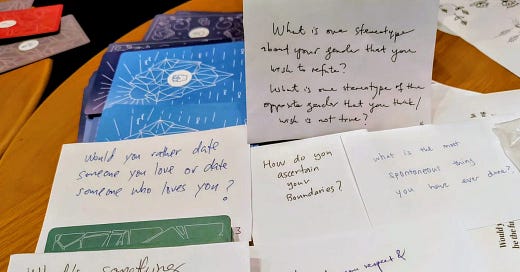 What is one stereotype
about your gender that you
wish to refute?
What is one stereotype of the
opposite gender that you think/
wish is not true?
Would you rather date
someone you love or date
someone who loves you?
How do you
ascertain
your
Boundaries?
what is the most
spontaneous thing
you have ever done?
something
you respect &
3